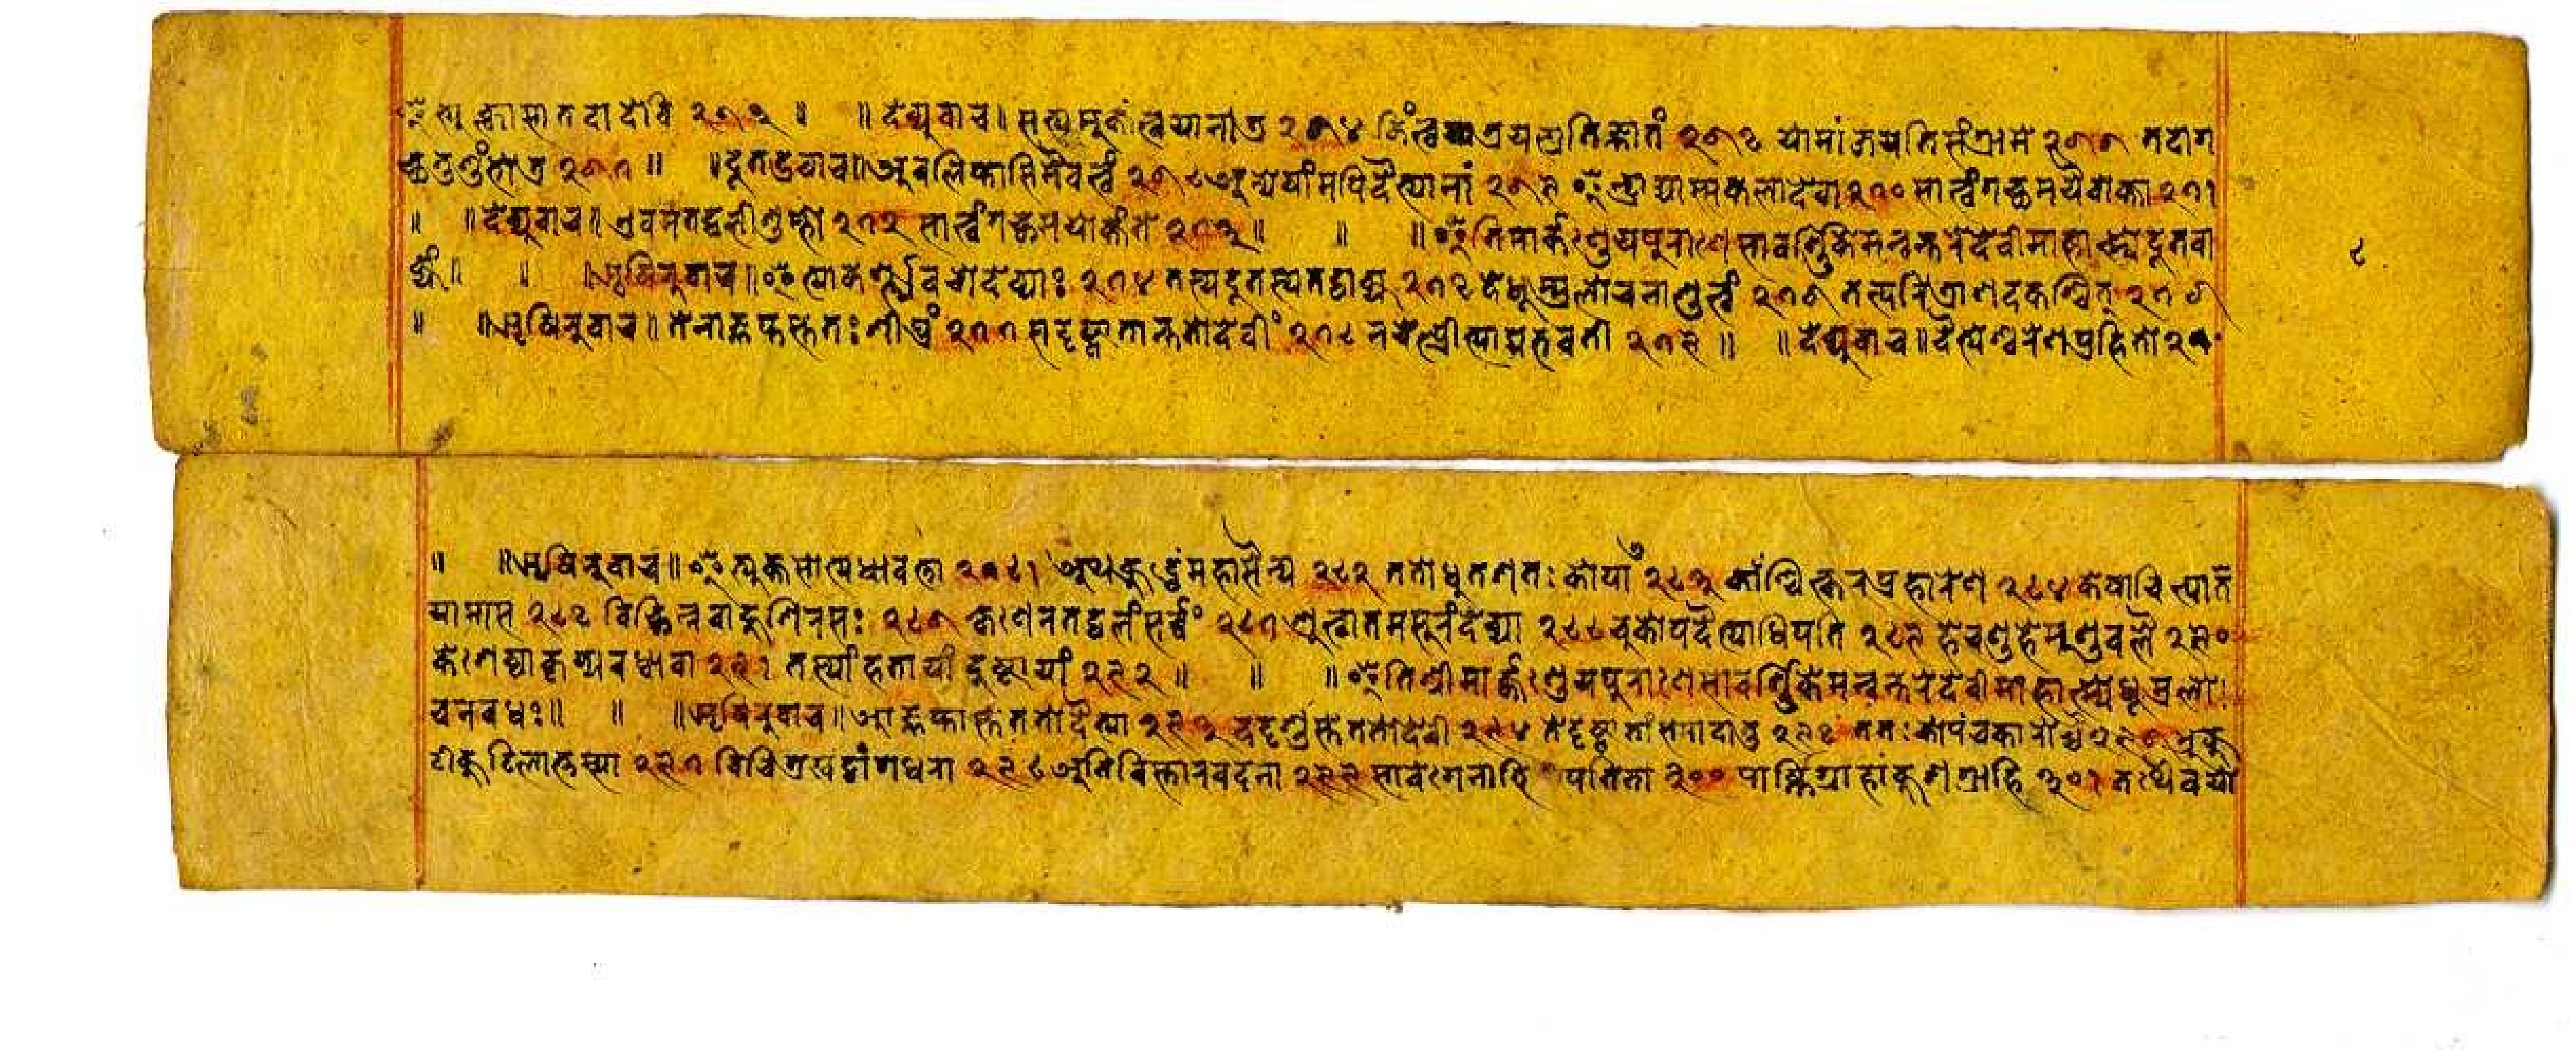 इत्युक्त्वा सा तदा देवि २६३ ॥ ॥ देव्युवाच ॥ सत्यमुक्तं त्वया नात्र २६४ किं त्वत्र यत्प्रतिज्ञातं २६५ यो मां जयति संग्रामे २६६ तदाग
च्छतु शुंभोत्र २६७ ॥ ॥ दूत उवाच ॥ अवलिप्तासि मैवं त्वं २६८ अन्येषांमपि दैत्यानां २६९ इन्द्राद्यास्सकला देवा २७० सा त्वं गच्छ मयैवोक्ता २७१
॥ ॥ देव्युवाच ॥ एवमेतद्बली शुम्भो २७२ सा त्वं गच्छ मयोक्तं ते २७३ ॥ ॥ ॥ इति मार्कण्डेयपुराणे सावर्ण्णिके मन्वन्तरे देवीमाहात्म्ये दूतवा
क्यं ॥ ॥ ॥ ऋषिरुवाच ॥ इत्याकर्ण्य वचो देव्याः २७४ तस्य दूतस्य तद्वाक्य २७५ हे धूम्रलोचनाशु त्वं २७६ तत्परित्राणद कश्चित्
॥ ॥ ऋषिरुवाच ॥ तेनाज्ञप्तस्ततः शीघ्रं २७७ स दृष्ट्वा तान्ततो देवीं २७८ न चेत्प्रीत्याद्य भवती २७९ ॥ ॥ देव्युवाच ॥ दैत्येश्वरेण प्रहितो
८
॥ ॥ ऋषिरुवाच ॥ इत्युक्त सोत्यधावत्ता २८१ अथ क्रुद्धं महासैन्य २८२ ततो धुतशतः कोपा २८३ कांश्चित्करप्रहारेण २८४ केषाचित्पात
यामास २८५ विच्छिन्नबाहुशिरसः २८६ क्षणेन तद्बलं सर्व्वं २८७ श्रुत्वा तमसुरं देव्या २८८ चुकोप दैत्याधिपति २८९ हे चण्ड हे मुण्ड बलै २९०
केशेष्वाकृष्य बध्वा वा २९१ तस्यां हतायां दुष्टायां २९२ ॥ ॥ ॥ इति श्रीमार्क्कण्डेयपुराणे सावर्ण्णिके मन्वन्तरे देवीमाहात्म्ये धूम्रलो
चनबधः ॥ ॥ ॥ ऋषिरुवाच ॥ आज्ञप्तास्ते ततो दैत्या २९३ ददृशुस्ते ततो देवी २९४ ते दृष्ट्वा तां समादातु २९५ ततः कोपं चकारोच्चै २९६ भ्रुकु
टीकुटिलात्तस्या २९७ विचित्रखट्वांगधरा २९८ अतिविस्तारवदना २९९ सा वेगेनाभिपतिता ३०० पार्ष्णिग्राहांकुशग्राहि ३०१ तथैव यो